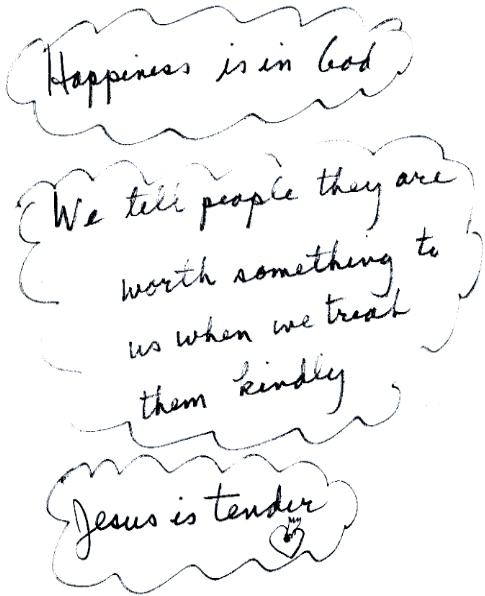 Happiness is in God
We tell people they are
worth something to
us when we treat
them kindly
Jesus is tender